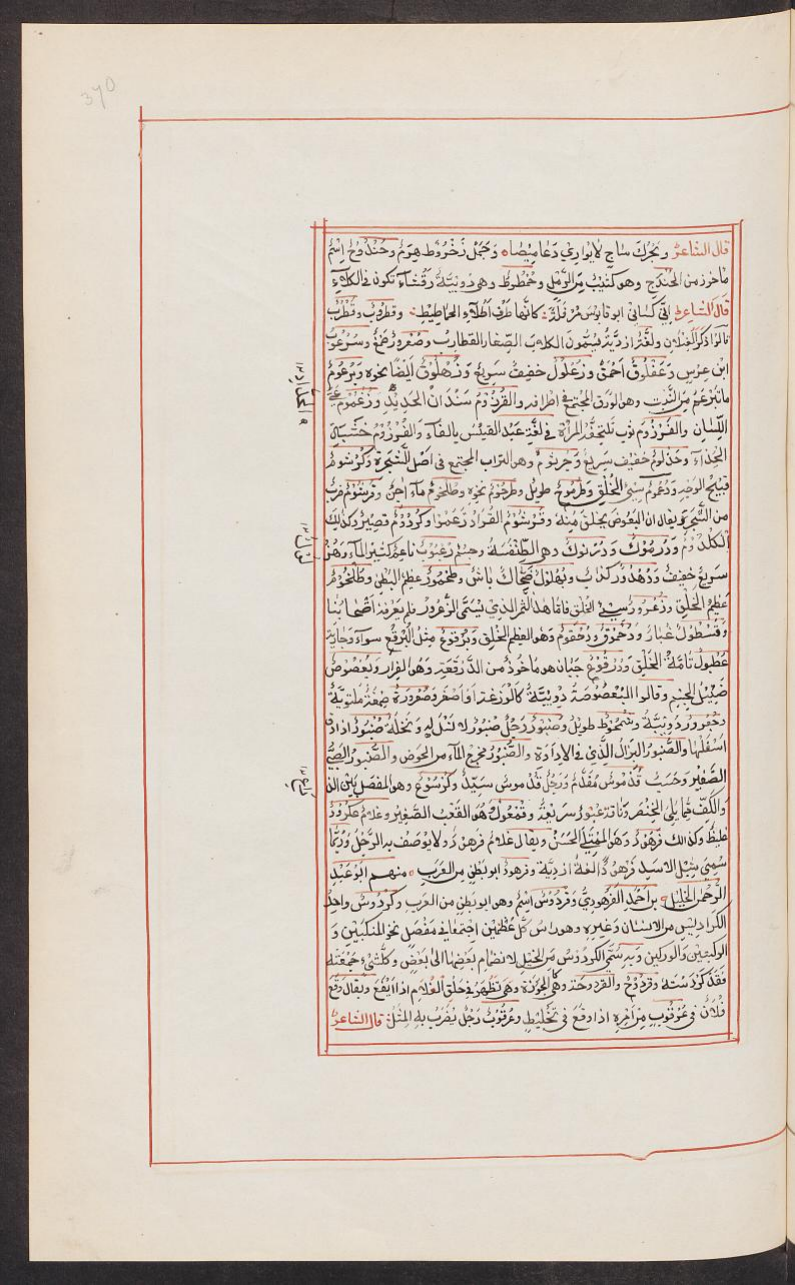 370
قال الشاعر وبحرك ساج لا يواري دعاميصا وجمل زخروط هرم وحندوج اسم
ماخوذ من الحندج وهو كثيب من الرمل وحمطوط وهي دويبة رقشاء تكون في الكلاء
قال الشاعر اني كساني ابو قابوس مرفلة كانها ظرف اطلاء الحماطيط وقطروب وقطرب
قالوا ذكر الغيلان ولغة لازد يسمون الكلاب الصغار القطارب وصعرور صمغ وسرعوب
ابن عرس وعفلوق احمق وزعلول خفيف سريع وزهلوق ايضا نحوه وبرعوم
ما تبرعم من النبت وهو الورق المجتمع في اطرافه والقردوم سندان الحديد وزغموم عي
اللسان والقرزوم ثوب تلتحفه المرأة في لغة عبد القيس بالفاء والفرزوم خشبة
الحذاء وحذلوم خفيف سريع وجرثوم وهو التراب المجتمع في اصل الشجرة وكرشوم
قبيح الوجه ودعموم سيئ الخلق وطرموح طويل وطرحوم نحوه وطلخوم ماء آجن وقرشوم ضرب
من الشجر ويقال ان البعوض يخلق منه وقرشوم القراد زعموا وكردوم قصير وكذلك
الكلدوم ودرموك ودرنوك وهي الطنفسة وجسم رعبوب ناعم كثير الماء وهو
سريع خفيف ودهدور كذاب وبهلول ضحاك باش وطحمور عظيم البطن وطلخوم
عظيم الخلق وزعرور سيئ الخلق فاما هذا الثمر الذي يسمى الزعرور فلم يعرفه اصحابنا
وقسطول غبار ودخموق ودحقوم وهو العظيم الخلق وبرقوع مثل البرقع سواء وجارية
عطبول تامة الخلق ودرقوع جبان هو ماخوذ من الدرقعة وهو الفرار وبعصوص
ضئيل الجسم وقالوا البعصوصة دويبة كالوزغة او اصغر وصعرورة صمغة ملتوية
وجعرور دويبة وشمحوط طويل وصنبور رجل صنبور لا نسل له ونخلة صنبور اذا دق
اسفلها والصنبور البزال الذي في الاداوة والصنبور مخرج الماء من الحوض والصنبور الصبي
الصغير وحسب قدموس مقدم ورجل قدموس سيد وكرسوع وهو المفصل بين الذ
والكف مما يلي الخنصر وناقة عبسور سريعة وقمعول وهو القعب الصغير وغلام عكرود
غليظ وكذلك فرهود وهو الممتلئ الحسن ويقال غلام فرهود ولا يوصف به الرجل وربما
سمي شبل الاسد فرهودا لغة ازدية وفرهود ابو بطن من العرب منهم ابو عبد
الرحمن الخليل بن احمد الفرهودي وقردوس اسم وهو ابو بطن من العرب وكردوس واحد
الكراديس من الانسان وغيره وهو راس كل عظمين اجتمعا في مفصل نحو المنكبين و
الركبتين والوركين وبه سمي الكردوس من الخيل لانضمام بعضها الى بعض وكل شيء جمعته
فقد كردسته وقردوح والقردوحة وهي الجوزة وهي تظهر في حلق الغلام اذا ايفع ويقال وقع
فلان في عرقوب من امره اذا وقع في تخليط وعرقوب رجل يضرب به المثل قال الشاعر